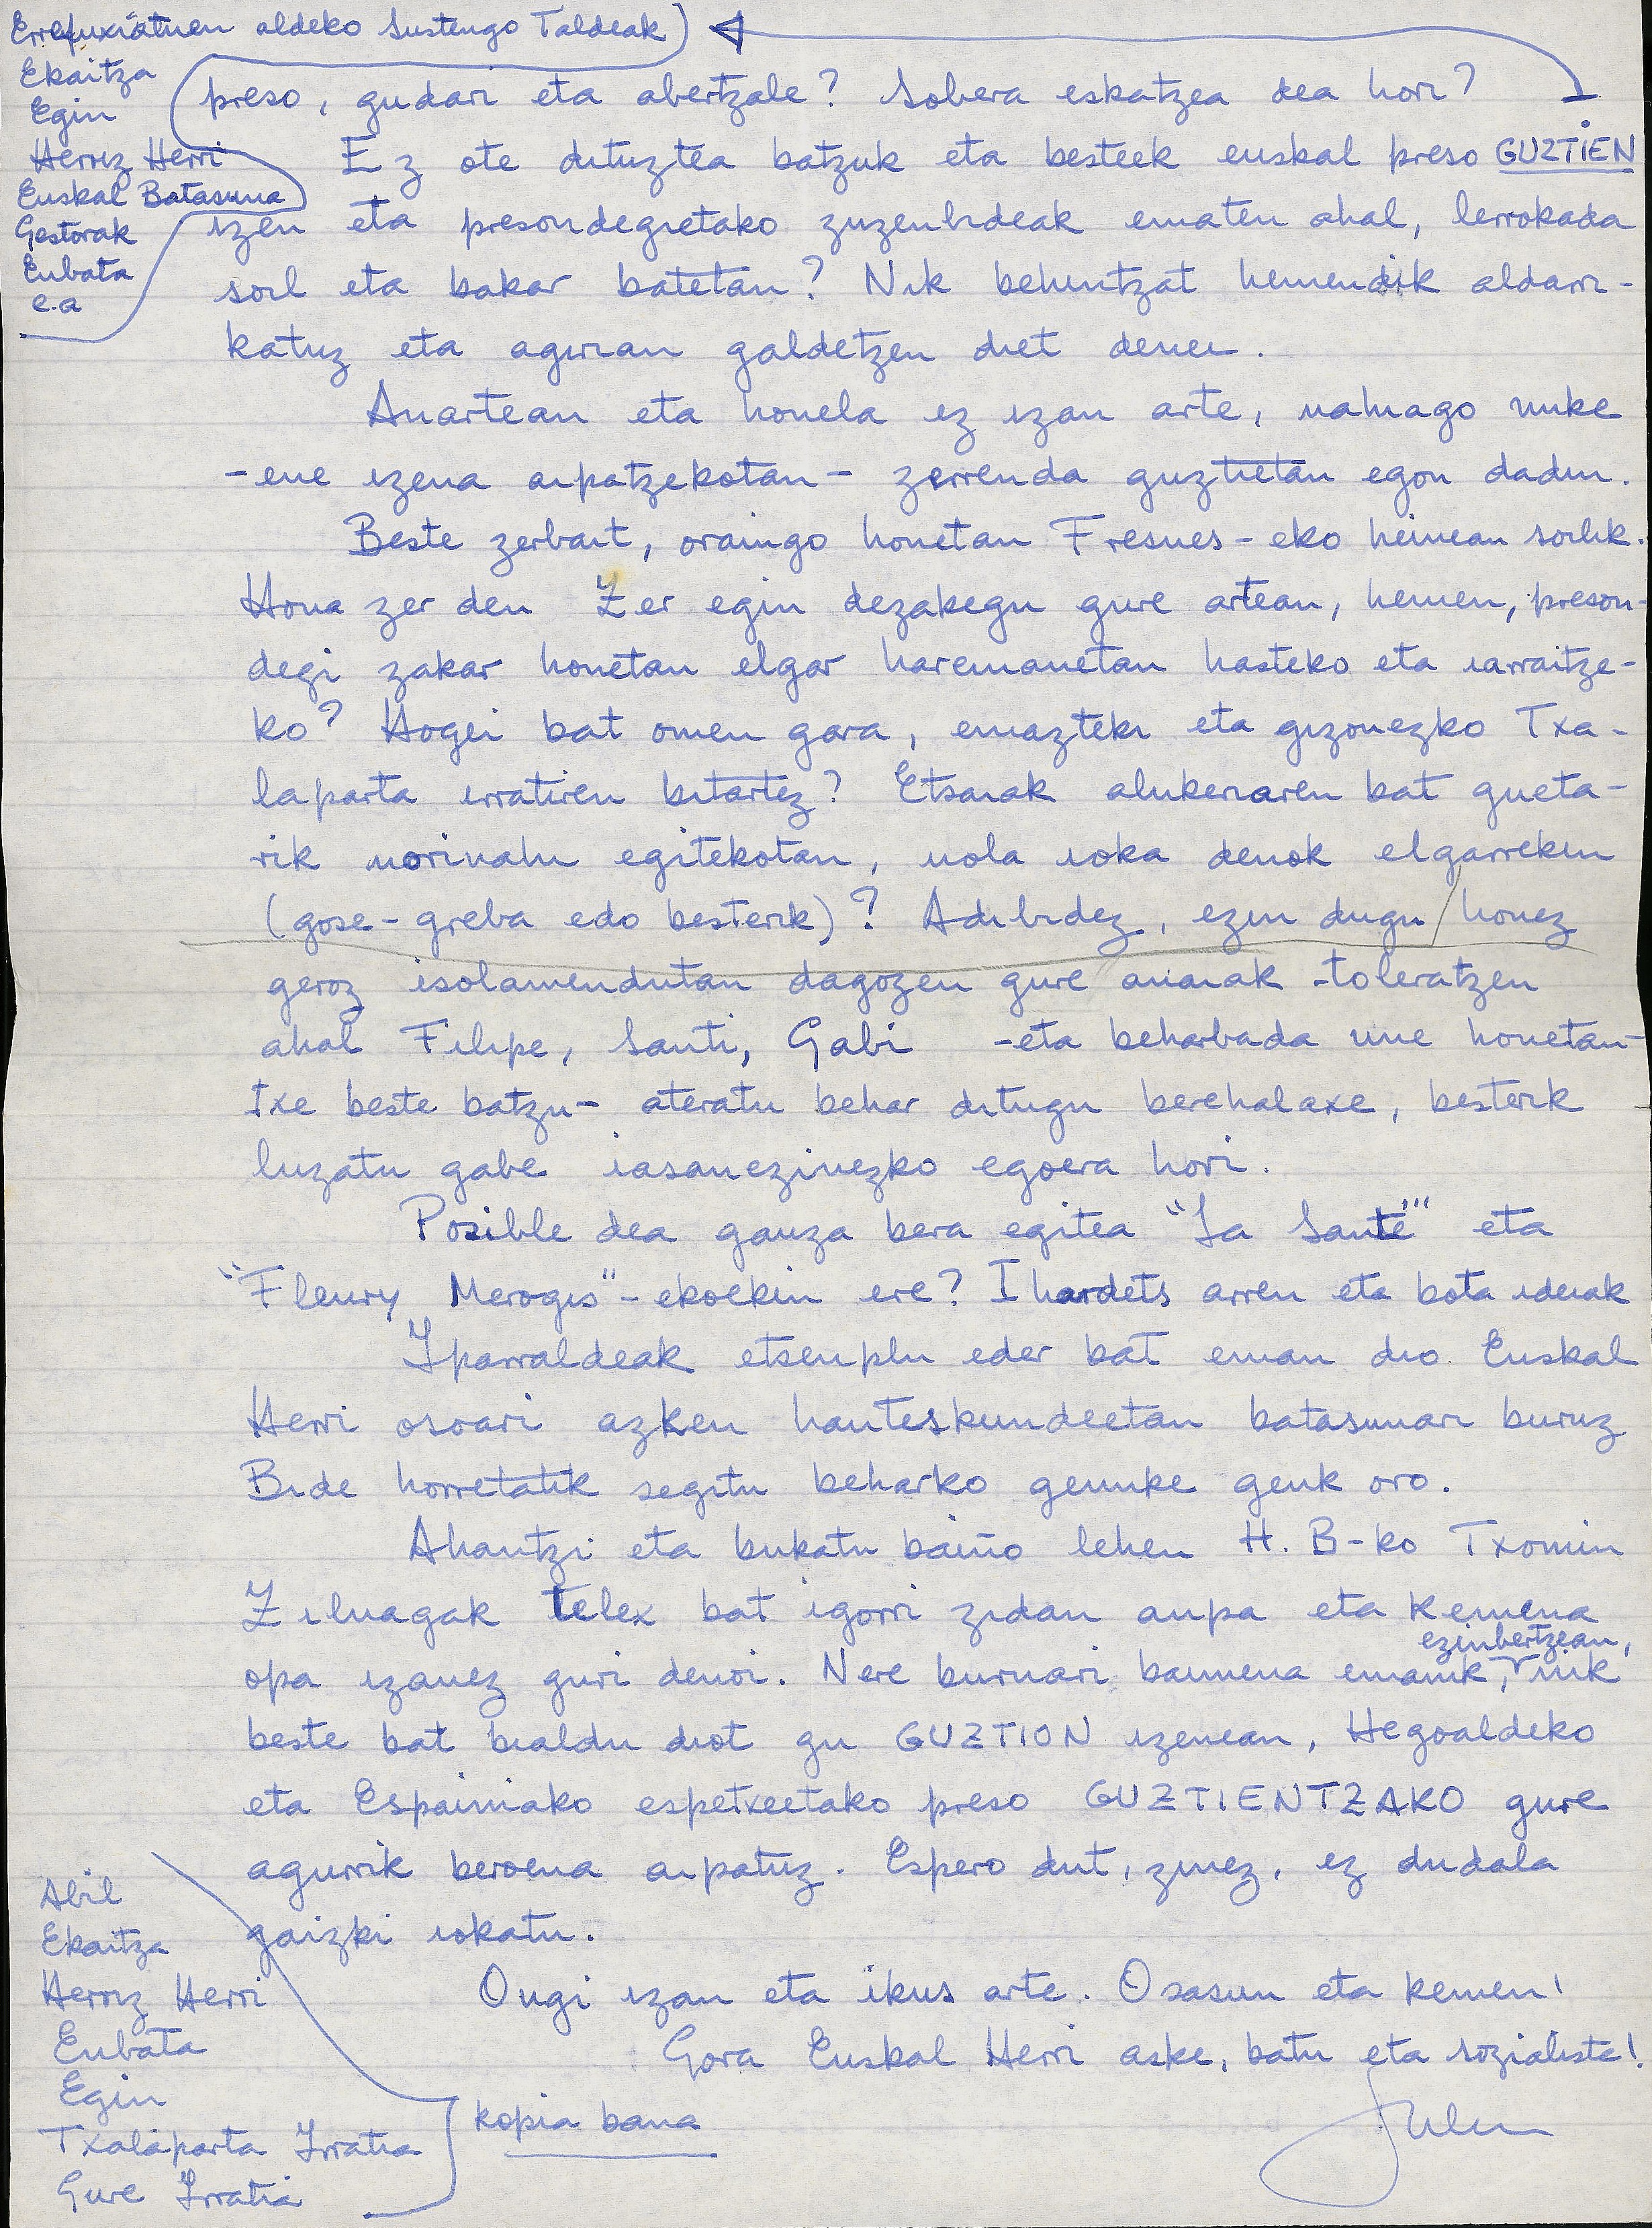 Errefuxiatuen aldeko Sustengo Taldeak)
Ekaitza
Egin
Herriz Herri
Euskal Batasuna
Gestorak
Enbata
e.a
preso, gudari eta abertzale? Sobera eskatzea dea hori?
Ez ote dituztea batzuk eta besteek euskal preso GUZTIEN
izen eta presondegietako zuzenbideak ematen ahal, lerrokada
soil eta bakar batetan? Nik behintzat hemendik aldarri-
katuz eta agirian galdetzen diet denei.
Anartean eta honela ez izan arte, nahiago nuke
-ene izena aipatzekotan- zerrenda guztietan egon dadin.
Beste zerbait, oraingo honetan Fresnes-eko heinean soilik.
Hona zer den Zer egin dezakegu gure artean, hemen, preson-
degi zakar honetan elgar haremanetan hasteko eta iarraitze-
ko? Hogei bat omen gara, emazteki eta gizonezko Txa-
laparta irratiren bitartez? Etsaiak alukeriaren bat gueta-
rik norinahi egitekotan, nola ioka denok elgarrekin
(gose-greba edo besterik)? Adibidez, ezin dugu / honez
geroz isolamendutan dagozen gure anaiak -toleratzen
ahal Filipe, Santi, Gabi -eta beharbada une honetan-
txe beste batzu- ateratu behar ditugu berehalaxe, besterik
luzatu gabe iasanezinezko egoera hori.
Posible dea gauza bera egitea "La Santé" eta
"Fleury Merogis"-ekoekin ere? Ihardets arren eta bota ideiak
Iparraldeak etsenplu eder bat eman dio Euskal
Herri osoari azken hauteskundeetan batasunari buruz
Bide horretatik segitu beharko genuke genk oro.
Ahantzi eta bukatu baino lehen H. B-ko Txomin
Ziluagak telex bat igorri zidan aupa eta kemena
ezinbertzean,
opa izanez guri denoi. Nere buruari baimena emanik, nik
beste bat bialdu diot gu GUZTION izenean, Hegoaldeko
eta Espainiako espetxeetako preso GUZTIENTZAKO gure
agurrik beroena aipatuz. Espero dut, zinez, ez dudala
gaizki iokatu.
Ongi izan eta ikus arte. Osasun eta kemen!
Gora Euskal Herri aske, batu eta sozialista!
Julen
Abil
Ekaitza
Herriz Herri
Enbata
Egin
Txalaparta Irratia
Gure Irratia
kopia bana